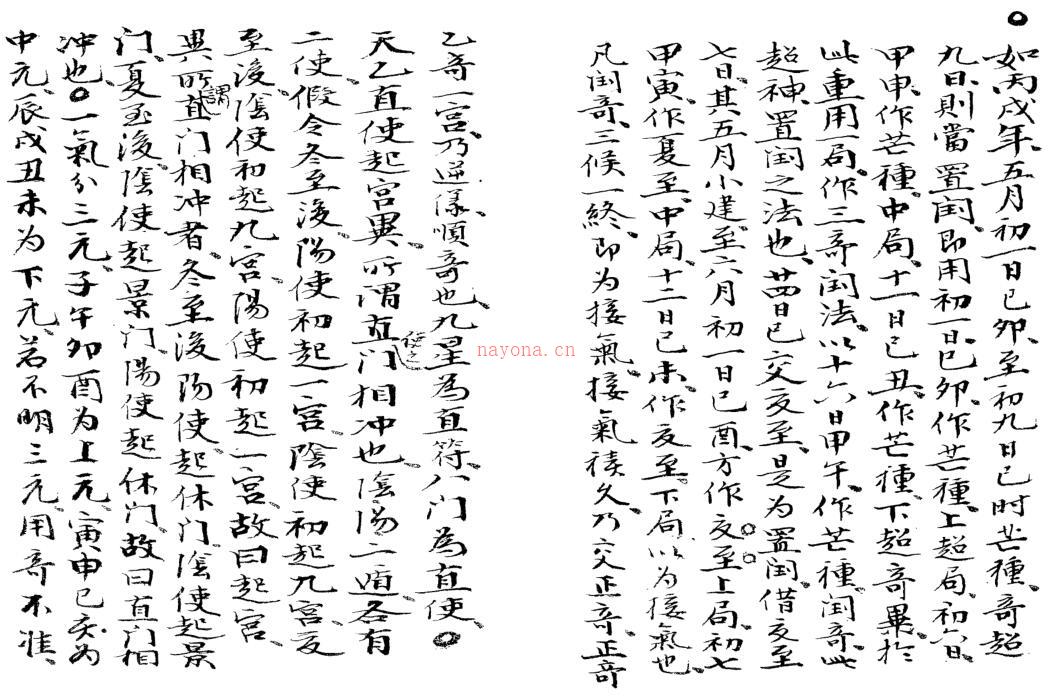 ○
如丙戌年五月初一日已卯至初九日已时芒種奇超
九日則當置闰即用初一日已卯作芒種上超局初六日
甲申作芒種中局十一日已丑作芒種下超奇畢於
此重用一局作三奇闰法以十六日甲午作芒種闰奇此
超神置闰之法也廿四日已交夏至是为置闰借夏至
七日其五月小建至六月初一日已酉方作夏至上局初七
甲寅作夏至中局十二日已未作夏至下局以为接氣也
凡闰奇三候一終即为接氣接氣積久乃交正奇正奇
乙奇一宫乃逆儀順奇也九星為直符八门為直使○
天乙直使起宫異所謂直门相冲也陰陽二遁各有
二使假令冬至後陽使初起一宫陰使初起九宫夏
至後陰使初起九宫陽使初起一宫故曰起宫
異所謂直门相冲者冬至後陽使起休门陰使起景
门夏至後陰使起景门陽使起休门故曰直门相
冲也○一氣分三元子午卯酉为上元寅申已亥为
中元辰戌丑未为下元若不明三元用奇不准
nayona.cn